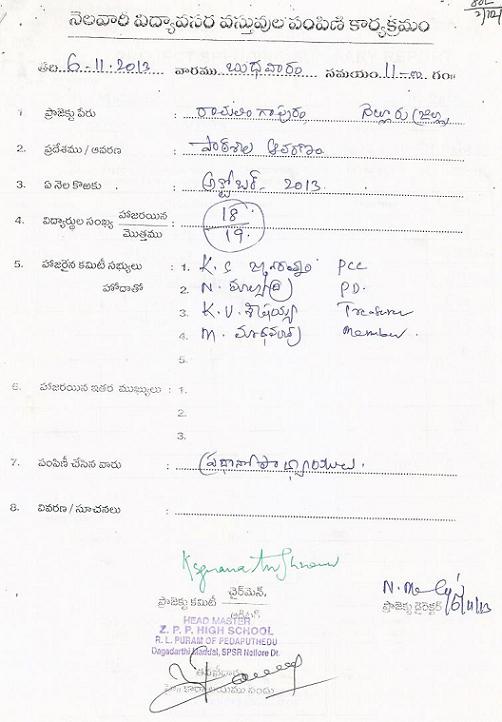 802
నెలవారి విద్యావసర వస్తువుల పంపిణి కార్యక్రమం
తేది 6-11-2013 వారము బుధవారం సమయం 11-00 గం॥
1. ప్రాజెక్టు పేరు : రాచలింగాపురం నెల్లూరు (జిల్లా)
2. ప్రదేశము / ఆవరణ : పాఠశాల ఆవరణం
3. ఏ నెల కొఱకు : అక్టోబర్ - 2013
4. విద్యార్థుల సంఖ్య హాజరయిన / మొత్తము : 18 / 19
5. హాజరైన కమిటీ సభ్యులు : 1. K.S PCC
హోదాతో 2. N. PD.
3. K.V. శేషయ్య Treasurer
4. M. Member.
5.
6. హాజరయిన ఇతర ముఖ్యులు : 1.
2.
3.
7. పంపిణీ చేసిన వారు : ప్రధానోపాధ్యాయులు.
8. వివరణ / సూచనలు :
చైర్‌మెన్,
ప్రాజెక్టు కమిటీ
N. 6/11/13
ప్రాజెక్టు డైరెక్టర్
HEAD MASTER
Z. P. P. HIGH SCHOOL
R. L. PURAM OF PEDAPUTHEDU
Dagadarthi Mandal, SPSR Nellore Dt.